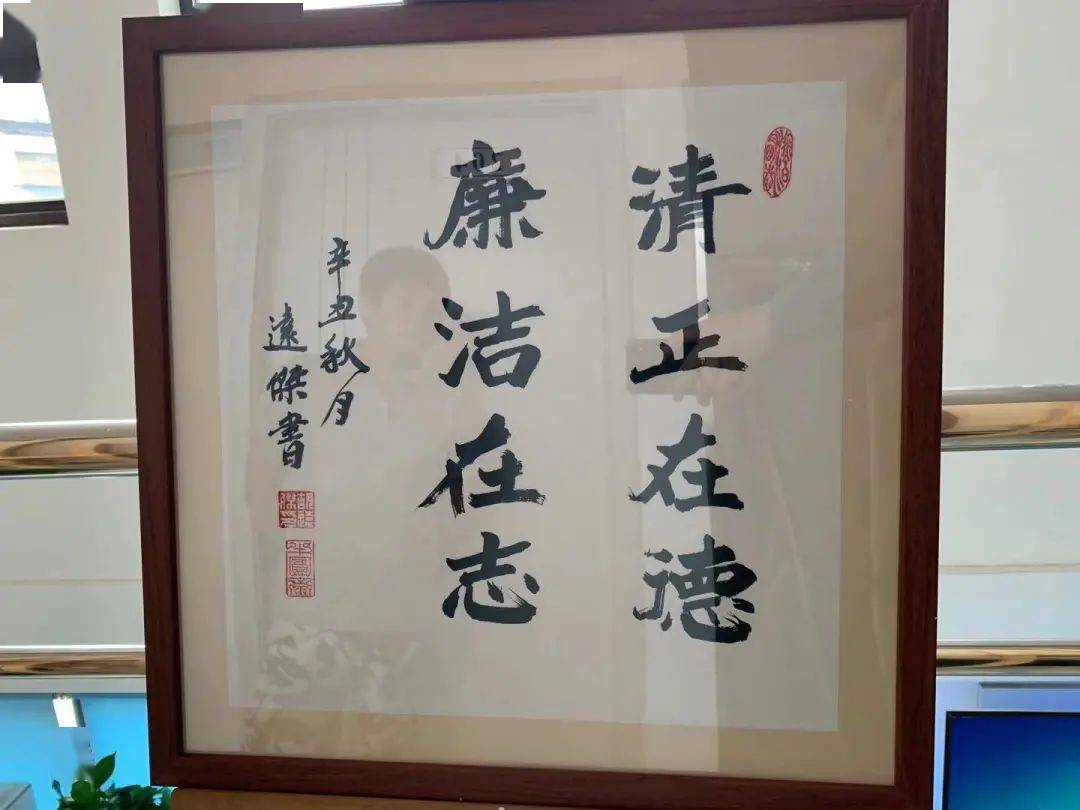 清正在德
廉洁在志
辛丑秋月
遠傑書